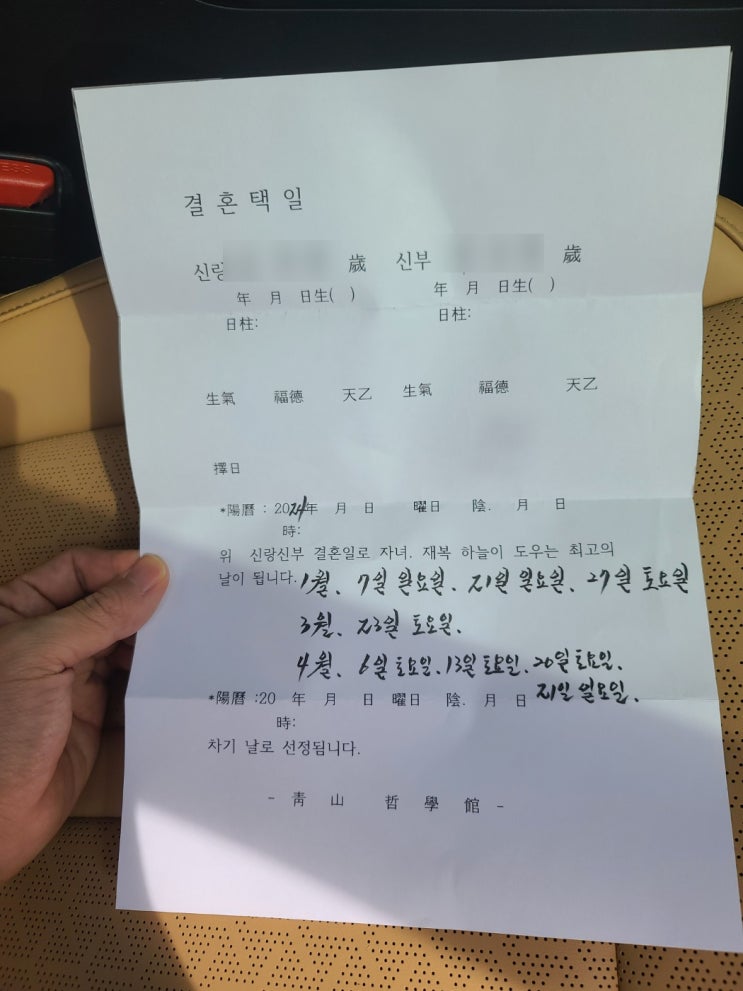 결혼택일
신랑 歲 신부 歲
年 月 日生( ) 年 月 日生( )
日柱: 日柱:
生氣 福德 天乙 生氣 福德 天乙
擇日
*陽曆 : 2024年 月 日 曜日 陰. 月 日
時:
위 신랑신부 결혼일로 자녀. 재복 하늘이 도우는 최고의
날이 됩니다. 1월. 7일 일요일. 21일 일요일. 27일 토요일
3월. 23일 토요일.
4월. 6일 토요일. 13일 토요일. 20일 토요일.
21일 일요일.
*陽曆 :20 年 月 日 曜日 陰. 月 日
時:
차기 날로 선정됩니다.
- 靑山 哲學館 -